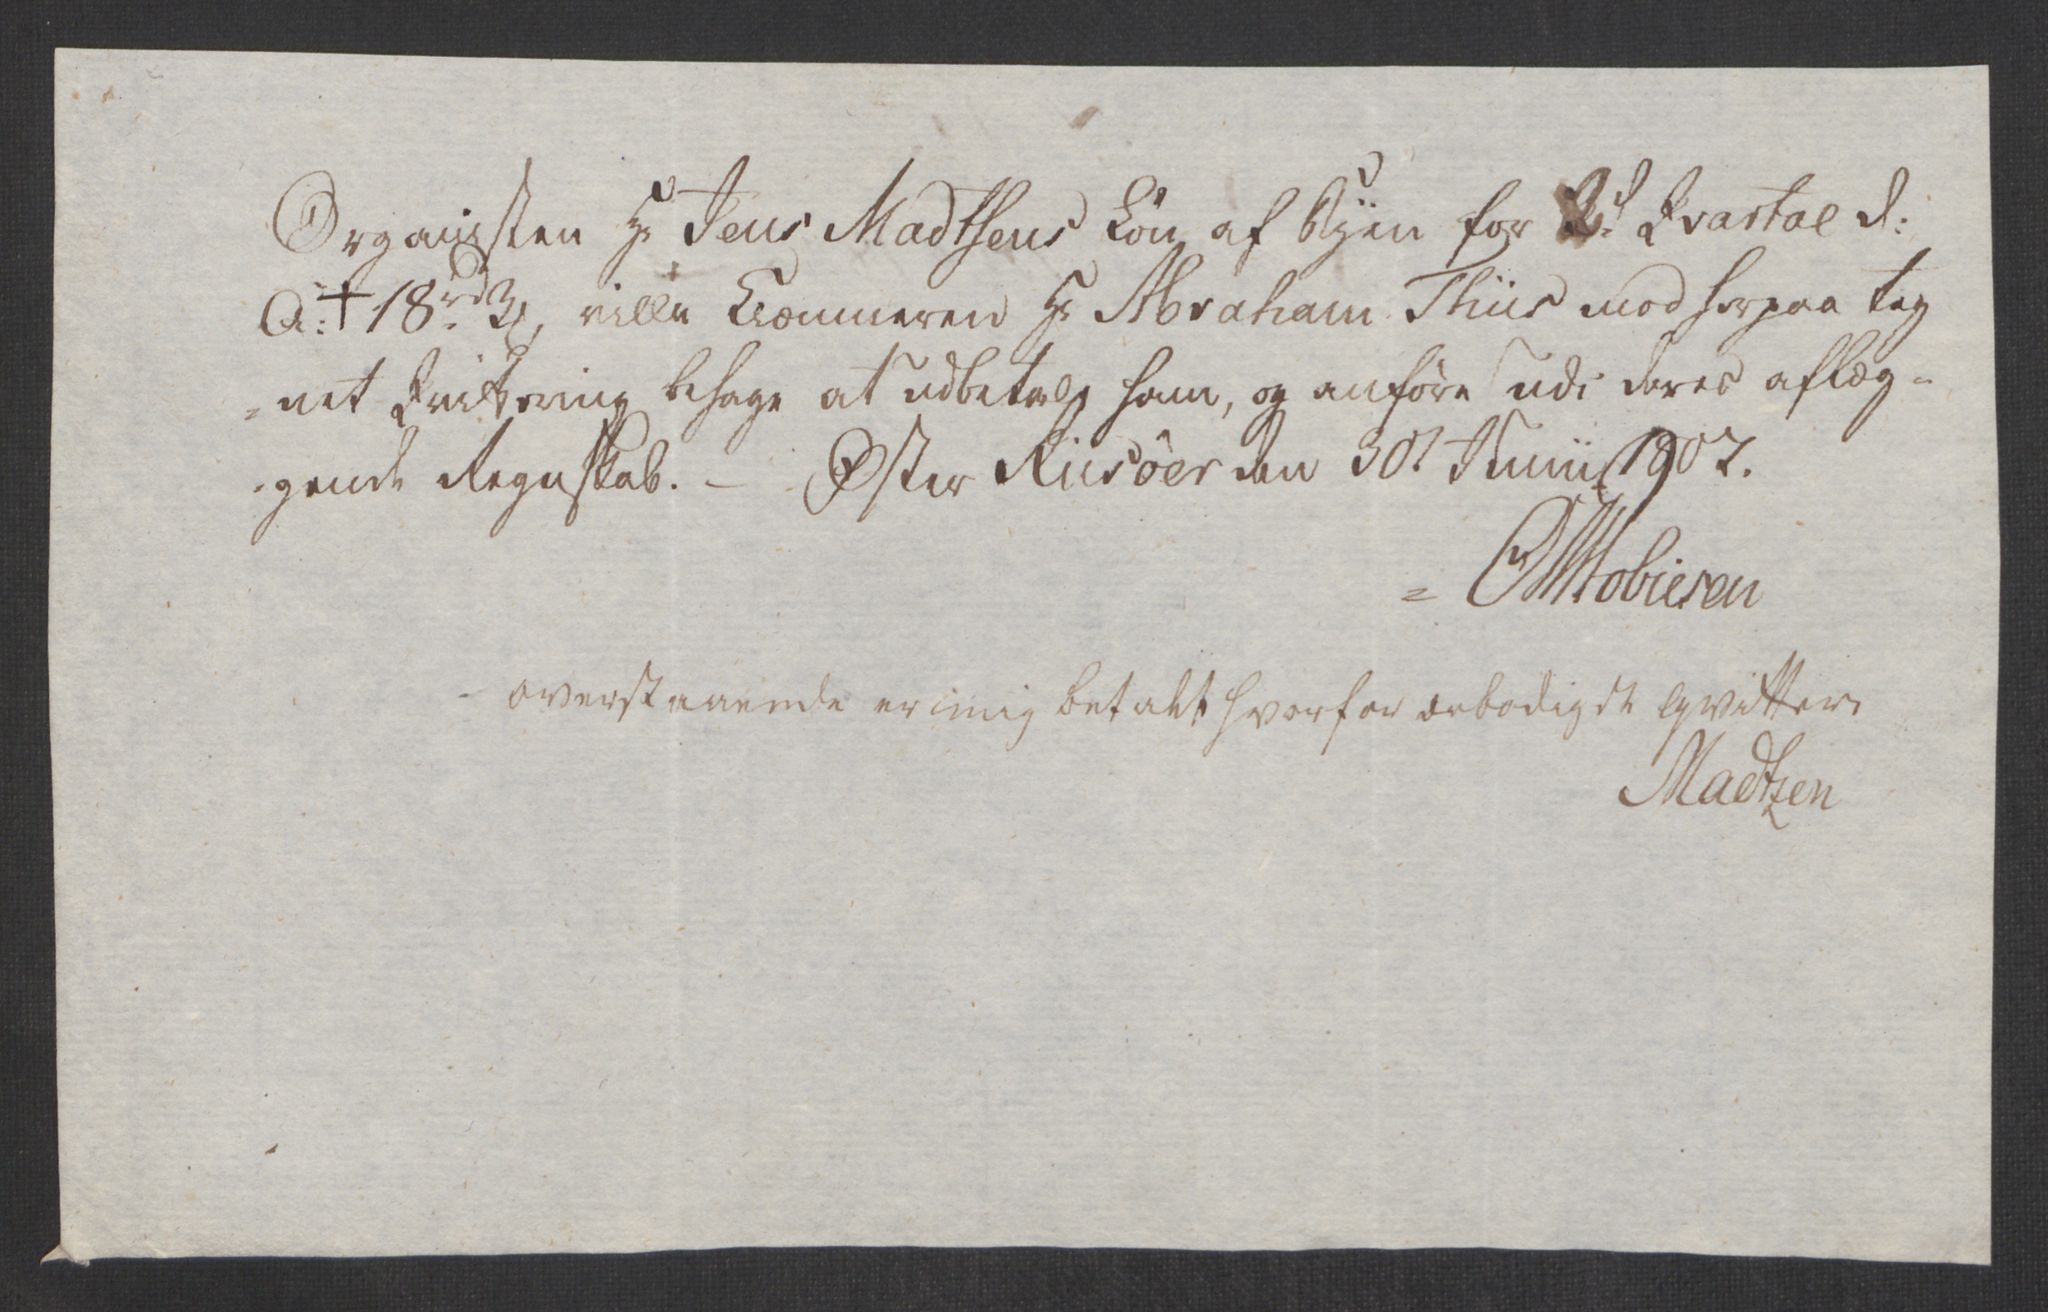 Organisten Hr Jens Madtsens Løn af Byen for 2d Qvartal d:
A: + 18 rd ville Kiæmneren Hr Abraham Thiis mod herpaa teg
=net Qvittering behage at udbetale ham, og anføre udi deres aflæg=
gende Regnskab. — Øster Riisöer den 30t Junii 1807.
= Tobiesen
overstaaende er mig betalt hvorfor ærbødigst qvitterer
Madtzen